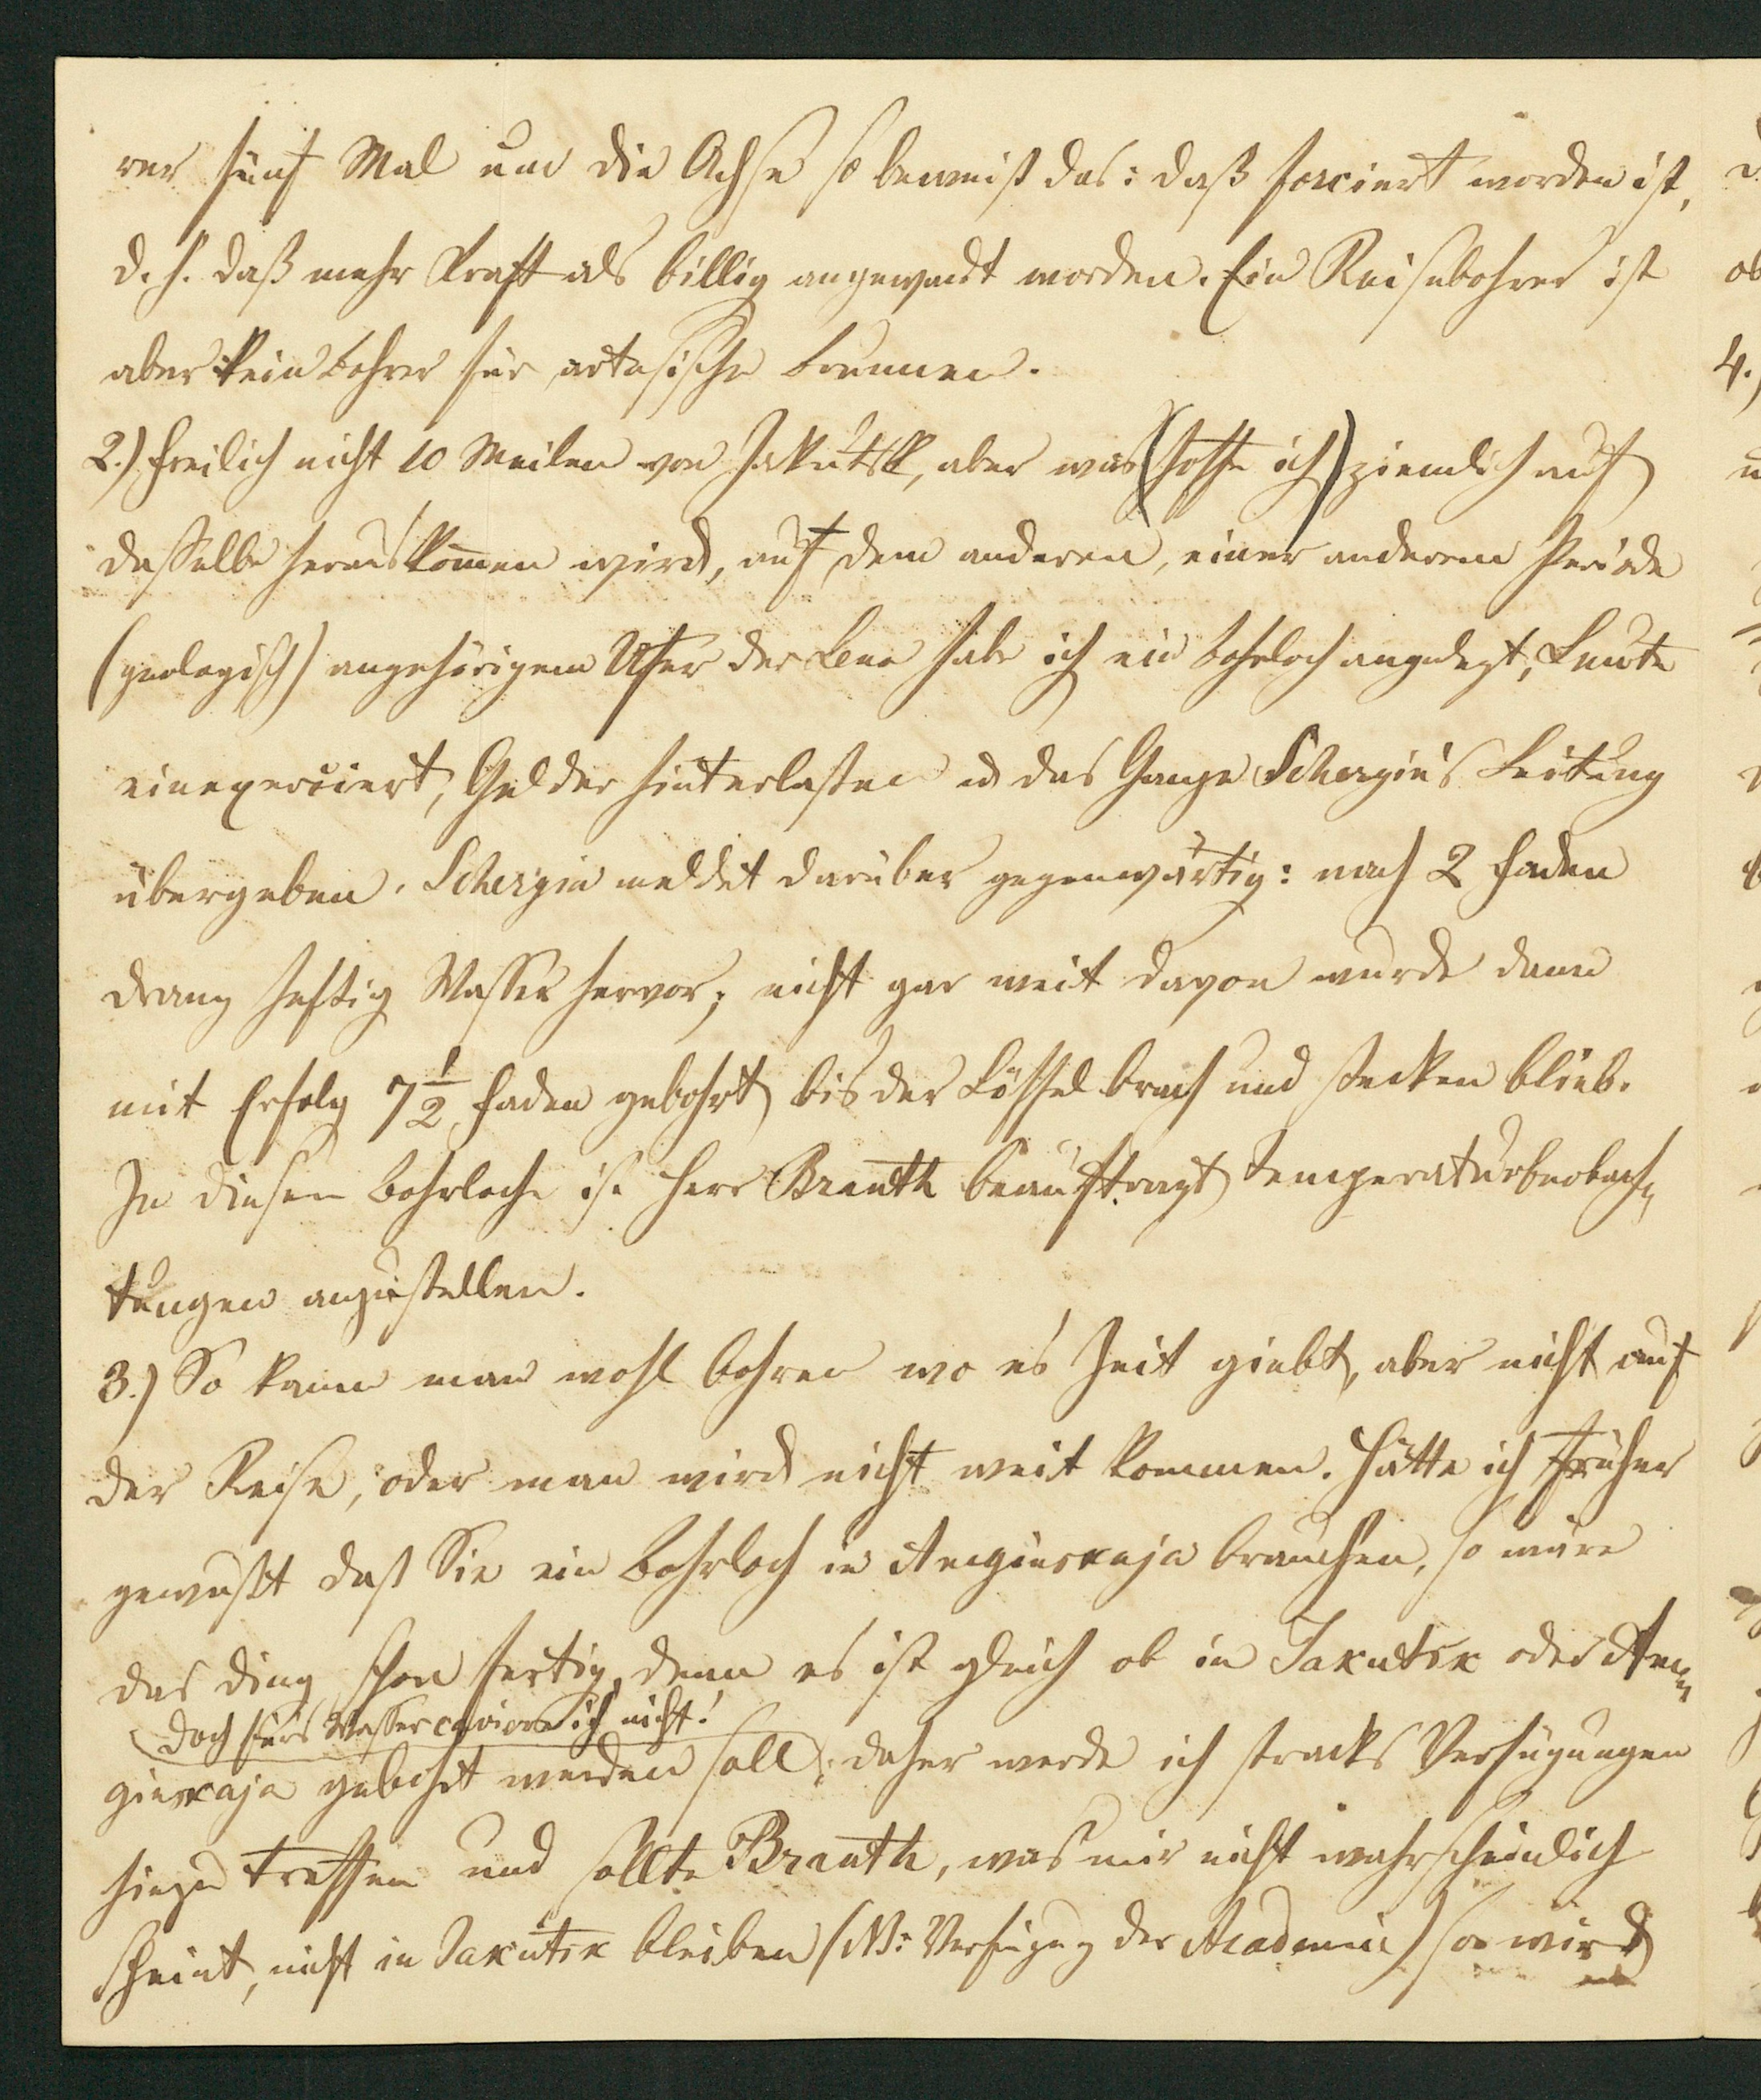 rer fünf Mal um die Achse so beweist das: daß forciert worden ist,
d. h. daß mehr Kraft als billig angewandt worden. Ein Reisebohrer ist
aber kein Bohrer für artesische Brunnen.
2.) Freilich nicht 10 Meilen von Jakutsk, aber was (hoffe ich) ziemlich auf
dasselbe herauskom̅en wird, auf dem anderen, einer anderen Periode
(geologisch) angehörigem Ufer der Lena habe ich ein Bohrloch angelegt, Leute
einexerciert, Gelder hinterlassen u das Ganze Schergin's Leitung
übergeben. Schergin meldet darüber gegenwärtig: nach 2 Faden
drang heftig Wasser hervor; nicht gar weit davon wurde dann
mit Erfolg 7 1/2 Faden gebohrt bis der Löffel brach und stecken blieb.
In diesem Bohrloche ist Herr Branth beauftragt Temperaturbeobach-
tungen anzustellen.
3.) So kann man wohl bohren wo es Zeit giebt, aber nicht auf
der Reise, oder man wird nicht weit kommen. Hätte ich früher
gewußt daß Sie ein Bohrloch in Amginskaja brauchen, so wäre
das Ding schon fertig, denn es ist gleich ob in Jakutsk oder Am-
(doch für's Wasser cavire ich nicht!
ginskaja gebohrt werden soll; daher werde ich stracks Verfügungen
hiezu treffen und sollte Branth, was mir nicht wahrscheinlich
scheint, nicht in Jakutsk bleiben (NB: Verfügung der Academie) so wird